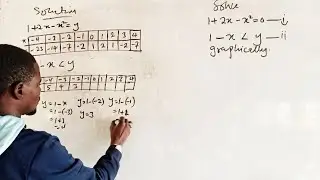 Solution
1+2x-x²=y
x -4 -3 -2 -1 0 1 2 3 4
-23 -14 -7 -2 1 2 1 -2 -7
-x<y
-4 -3 -2 -1 0 1 2 3 4
5 4 2
y=1-x y=1-(-2) y=1-(-1)
=1-(-3) y=3 =1+1
=1+3
Solve
1+2x-x²=0 — i
1-x<y — ii
graphically.